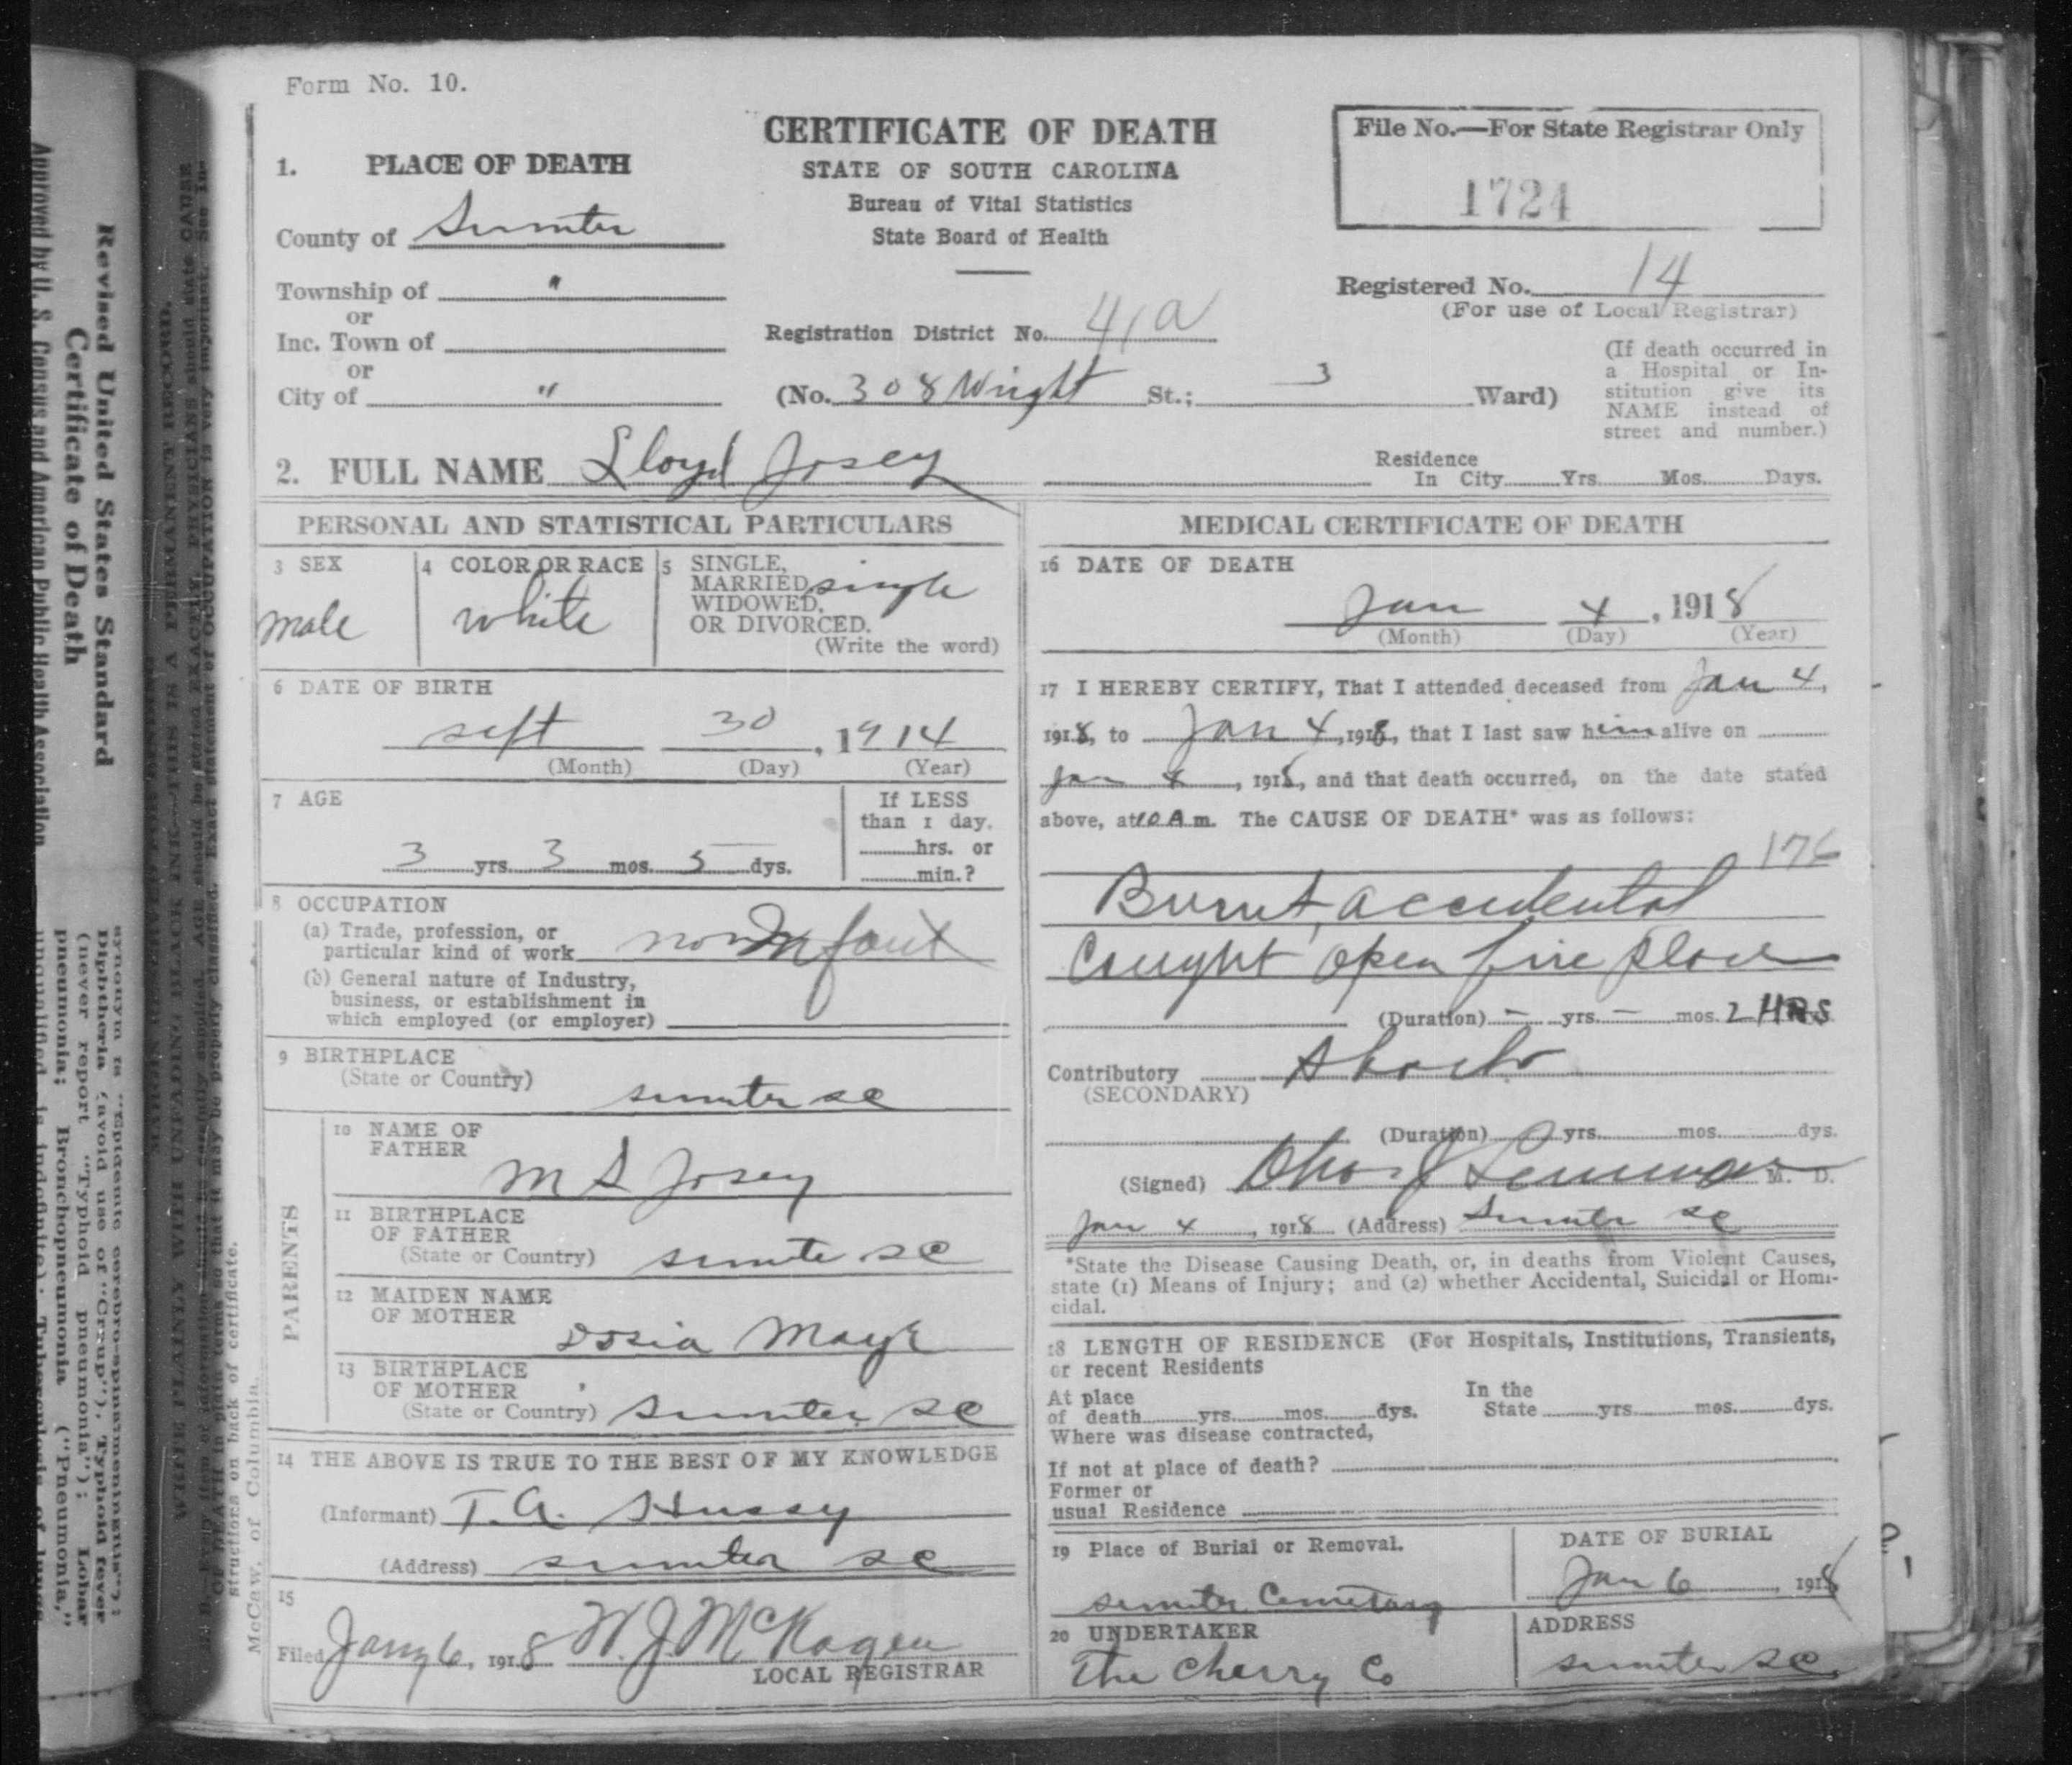 Form No. 10.
CERTIFICATE OF DEATH
STATE OF SOUTH CAROLINA
Bureau of Vital Statistics
State Board of Health
File No.—For State Registrar Only
1724
1. PLACE OF DEATH
County of Sumter
Township of "
or
Inc. Town of
or
City of "
Registration District No. 41a
Registered No. 14
(For use of Local Registrar)
(No. 308 Wright St.; 3 Ward)
(If death occurred in
a Hospital or In-
stitution give its
NAME instead of
street and number.)
2. FULL NAME Lloyd Josey
Residence
In City Yrs. Mos. Days.
PERSONAL AND STATISTICAL PARTICULARS
3 SEX
male
4 COLOR OR RACE
white
5 SINGLE,
MARRIED, single
WIDOWED,
OR DIVORCED.
(Write the word)
6 DATE OF BIRTH
sept 30, 1914
(Month) (Day) (Year)
7 AGE
3 yrs. 3 mos. 5 dys.
If LESS
than 1 day.
hrs. or
min.?
8 OCCUPATION
(a) Trade, profession, or
particular kind of work Infant
(b) General nature of Industry,
business, or establishment in
which employed (or employer)
9 BIRTHPLACE
(State or Country)
sumter sc
PARENTS
10 NAME OF
FATHER
M S Josey
11 BIRTHPLACE
OF FATHER
(State or Country) sumter sc
12 MAIDEN NAME
OF MOTHER
Dosia
13 BIRTHPLACE
OF MOTHER
(State or Country) sumter sc
14 THE ABOVE IS TRUE TO THE BEST OF MY KNOWLEDGE
(Informant) T. A. Hussy
(Address) sumter sc
15
Filed Jany 6, 1918 W. J. McKagen
LOCAL REGISTRAR
MEDICAL CERTIFICATE OF DEATH
16 DATE OF DEATH
Jan 4, 1918
(Month) (Day) (Year)
17 I HEREBY CERTIFY, That I attended deceased from Jan 4,
1918, to Jan 4, 1918, that I last saw him alive on
Jan 4, 1918, and that death occurred, on the date stated
above, at 10 A m. The CAUSE OF DEATH* was as follows:
176
Burnt, accidental
Caught open fire place
(Duration) – yrs. – mos. 2 HRS
Contributory Shock
(SECONDARY)
(Duration) yrs. mos. dys.
(Signed) M. D.
Jan 4, 1918 (Address) Sumter SC
*State the Disease Causing Death, or, in deaths from Violent Causes,
state (1) Means of Injury; and (2) whether Accidental, Suicidal or Homi-
cidal.
18 LENGTH OF RESIDENCE (For Hospitals, Institutions, Transients,
or recent Residents
At place
of death yrs. mos. dys.
In the
State yrs. mos. dys.
Where was disease contracted,
If not at place of death?
Former or
usual Residence
19 Place of Burial or Removal.
sumter Cemetary
DATE OF BURIAL
Jan 6, 1918
20 UNDERTAKER
The Cherry Co
ADDRESS
sumter sc
Revised United States Standard
Certificate of Death
Approved by U. S. Census and American Public Health Association
structions on back of certificate.
McCaw, of Columbia.